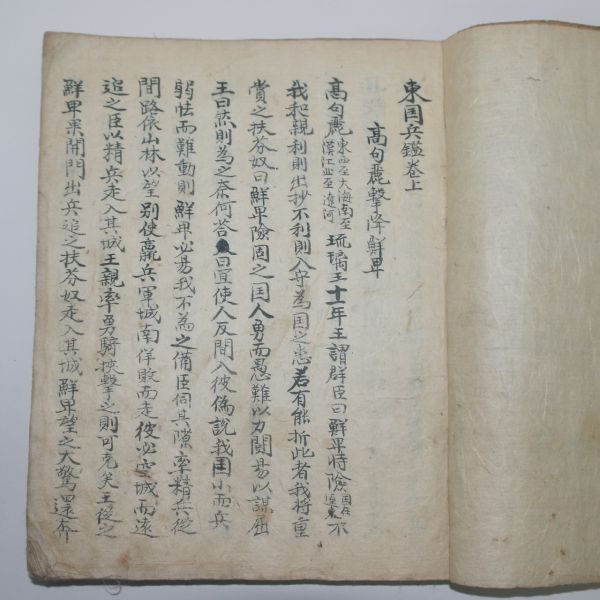 東国兵鑑卷上
高句麗擊降鮮卑
高句麗東西至大海南至漢江北至遼河琉璃王十一年王謂群臣曰鮮卑恃險国在遼東不
我和親利則出抄不利則入守為国之患若有能折此者我將重
賞之扶芬奴曰鮮卑險固之国人勇而愚難以力鬪易以謀屈
王曰然則為之奈何答曰宜使人反間入彼偽說我国小而兵
弱怯而難動則鮮卑必易我不為之備臣伺其隙率精兵從
間路依山林以望別使羸兵軍城南佯敗而走彼必空城而遠
追之臣以精兵走入其城王親率勇騎挾擊之則可克矣王從之
鮮卑果開門出兵追之扶芬奴走入其城鮮卑望之大驚還奔